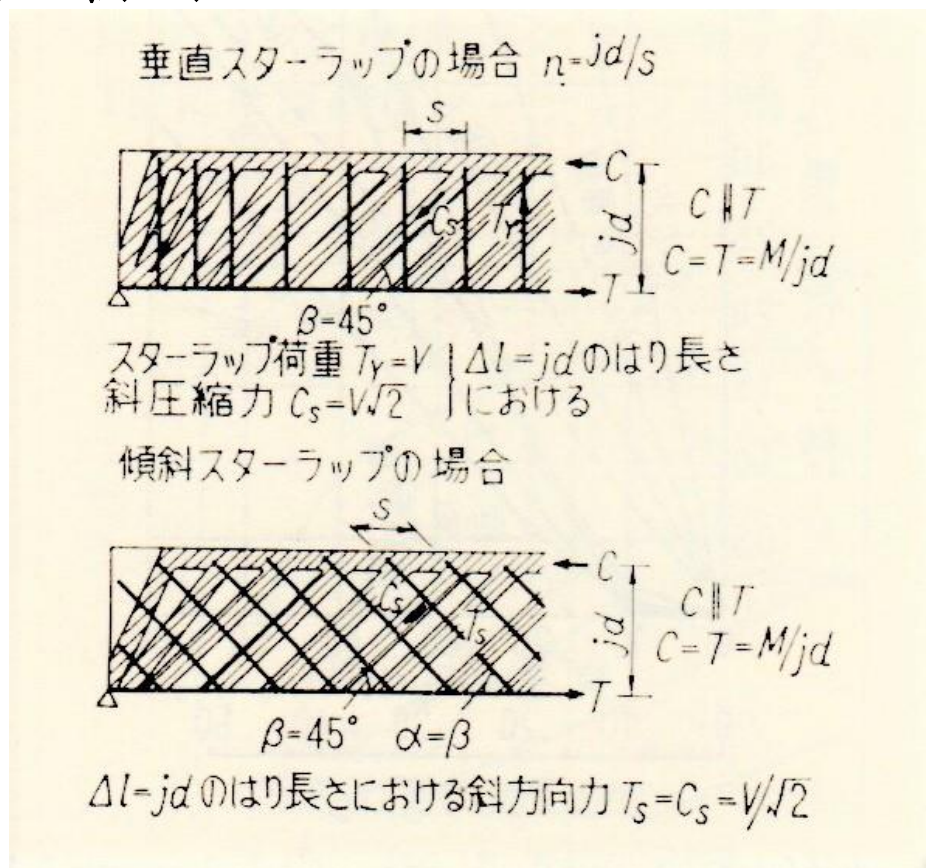 垂直スターラップの場合 n=jd/s
s
C
Cs
Tv
jd
C∥T
C=T=M/jd
T
β=45°
スターラップ荷重 Tv=V
斜圧縮力 Cs=V√2
Δl=jdのはり長さ
における
傾斜スターラップの場合
s
C
Cs
Ts
jd
C∥T
C=T=M/jd
T
β=45° α=β
Δl=jdのはり長さにおける斜方向力 Ts=Cs=V/√2